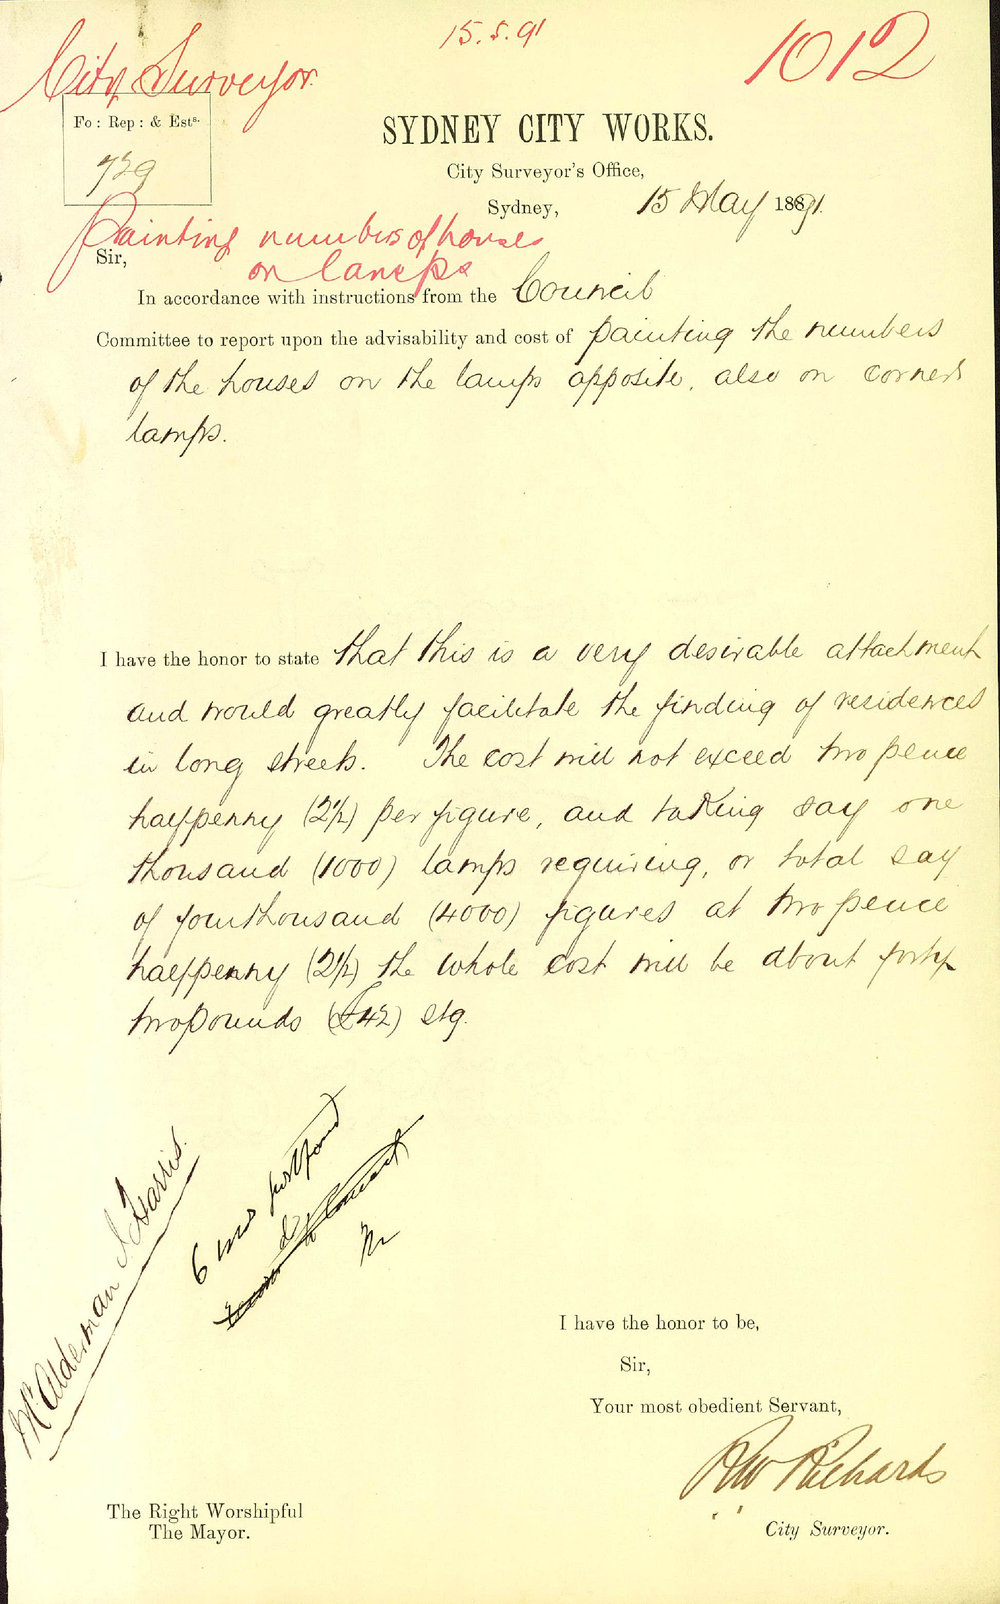 15.5.91
1012
City Surveyor.
Fo: Rep: & Ests.
729
SYDNEY CITY WORKS.
City Surveyor's Office,
Sydney, 15 May 1891.
Painting numbers of houses
on lamps
Sir,
In accordance with instructions from the Council
Committee to report upon the advisability and cost of painting the numbers
of the houses on the lamps opposite, also on corner
lamps.
I have the honor to state that this is a very desirable attachment
and would greatly facilitate the finding of residences
in long streets. The cost will not exceed two pence
halfpenny (2½) per figure, and taking say one
thousand (1000) lamps requiring, or total say
of four thousand (4000) figures at two pence
halfpenny (2½) the whole cost will be about forty
two pounds (£42) stg.
Mr Alderman J Harris.
6 mos
I have the honor to be,
Sir,
Your most obedient Servant,
RW Richards
City Surveyor.
The Right Worshipful
The Mayor.